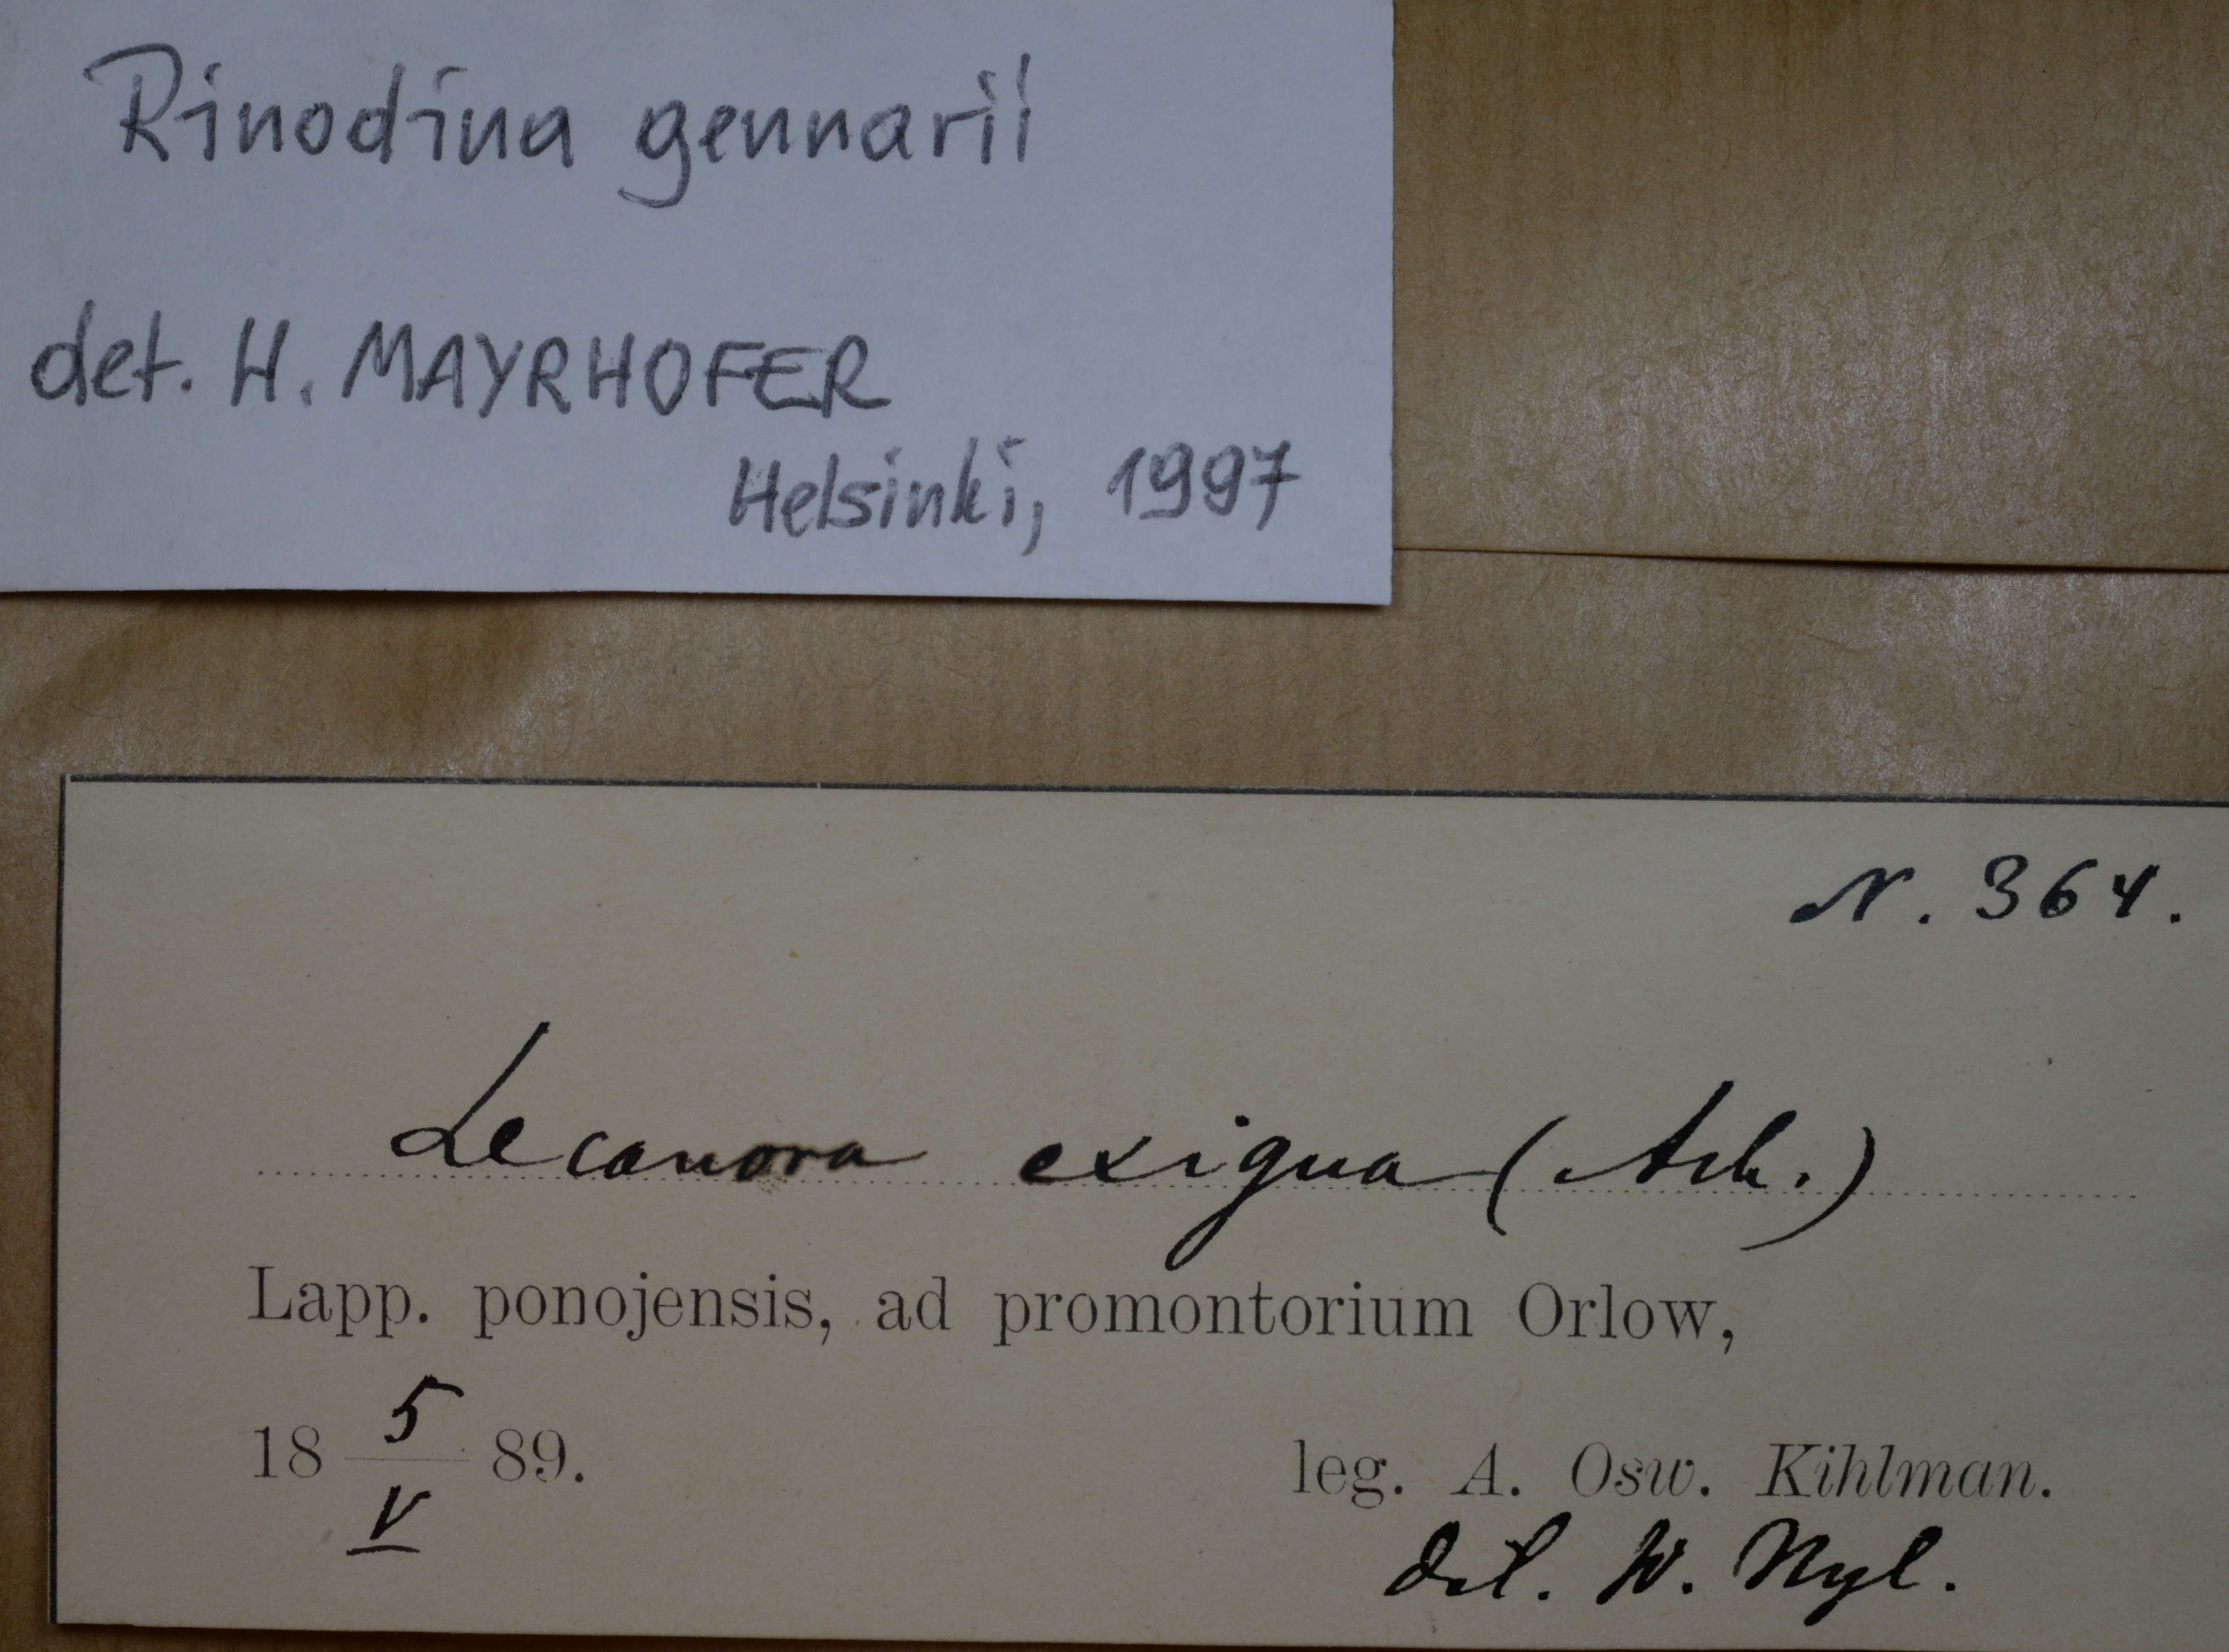 Rinodina gennarii
det. H. MAYRHOFER
Helsinki, 1997
N. 364.
Lecanora exigua (Ach.)
Lapp. ponojensis, ad promontorium Orlow,
18 5/V 89.
leg. A. Osw. Kihlman.
det. W. Nyl.